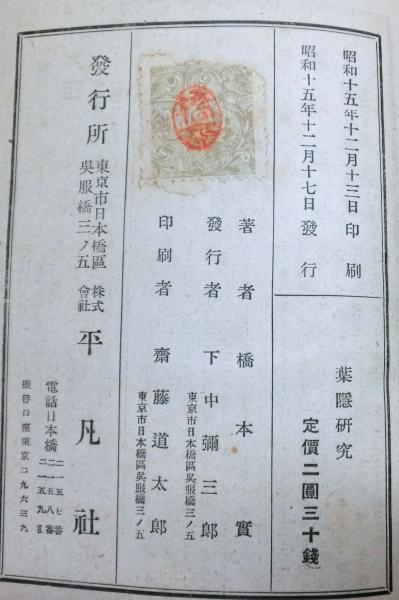 昭和十五年十二月十三日印刷
昭和十五年十二月十七日發行
葉隱研究
定價二圓三十錢
著者 橋本實
發行者 下中彌三郎
東京市日本橋區吳服橋三ノ五
印刷者 齋藤道太郎
東京市日本橋區吳服橋三ノ五
發行所
東京市日本橋區
吳服橋三ノ五
株式
會社
平凡社
電話日本橋
二一五七番
二一五八番
二一五九番
振替口座東京二九六三九